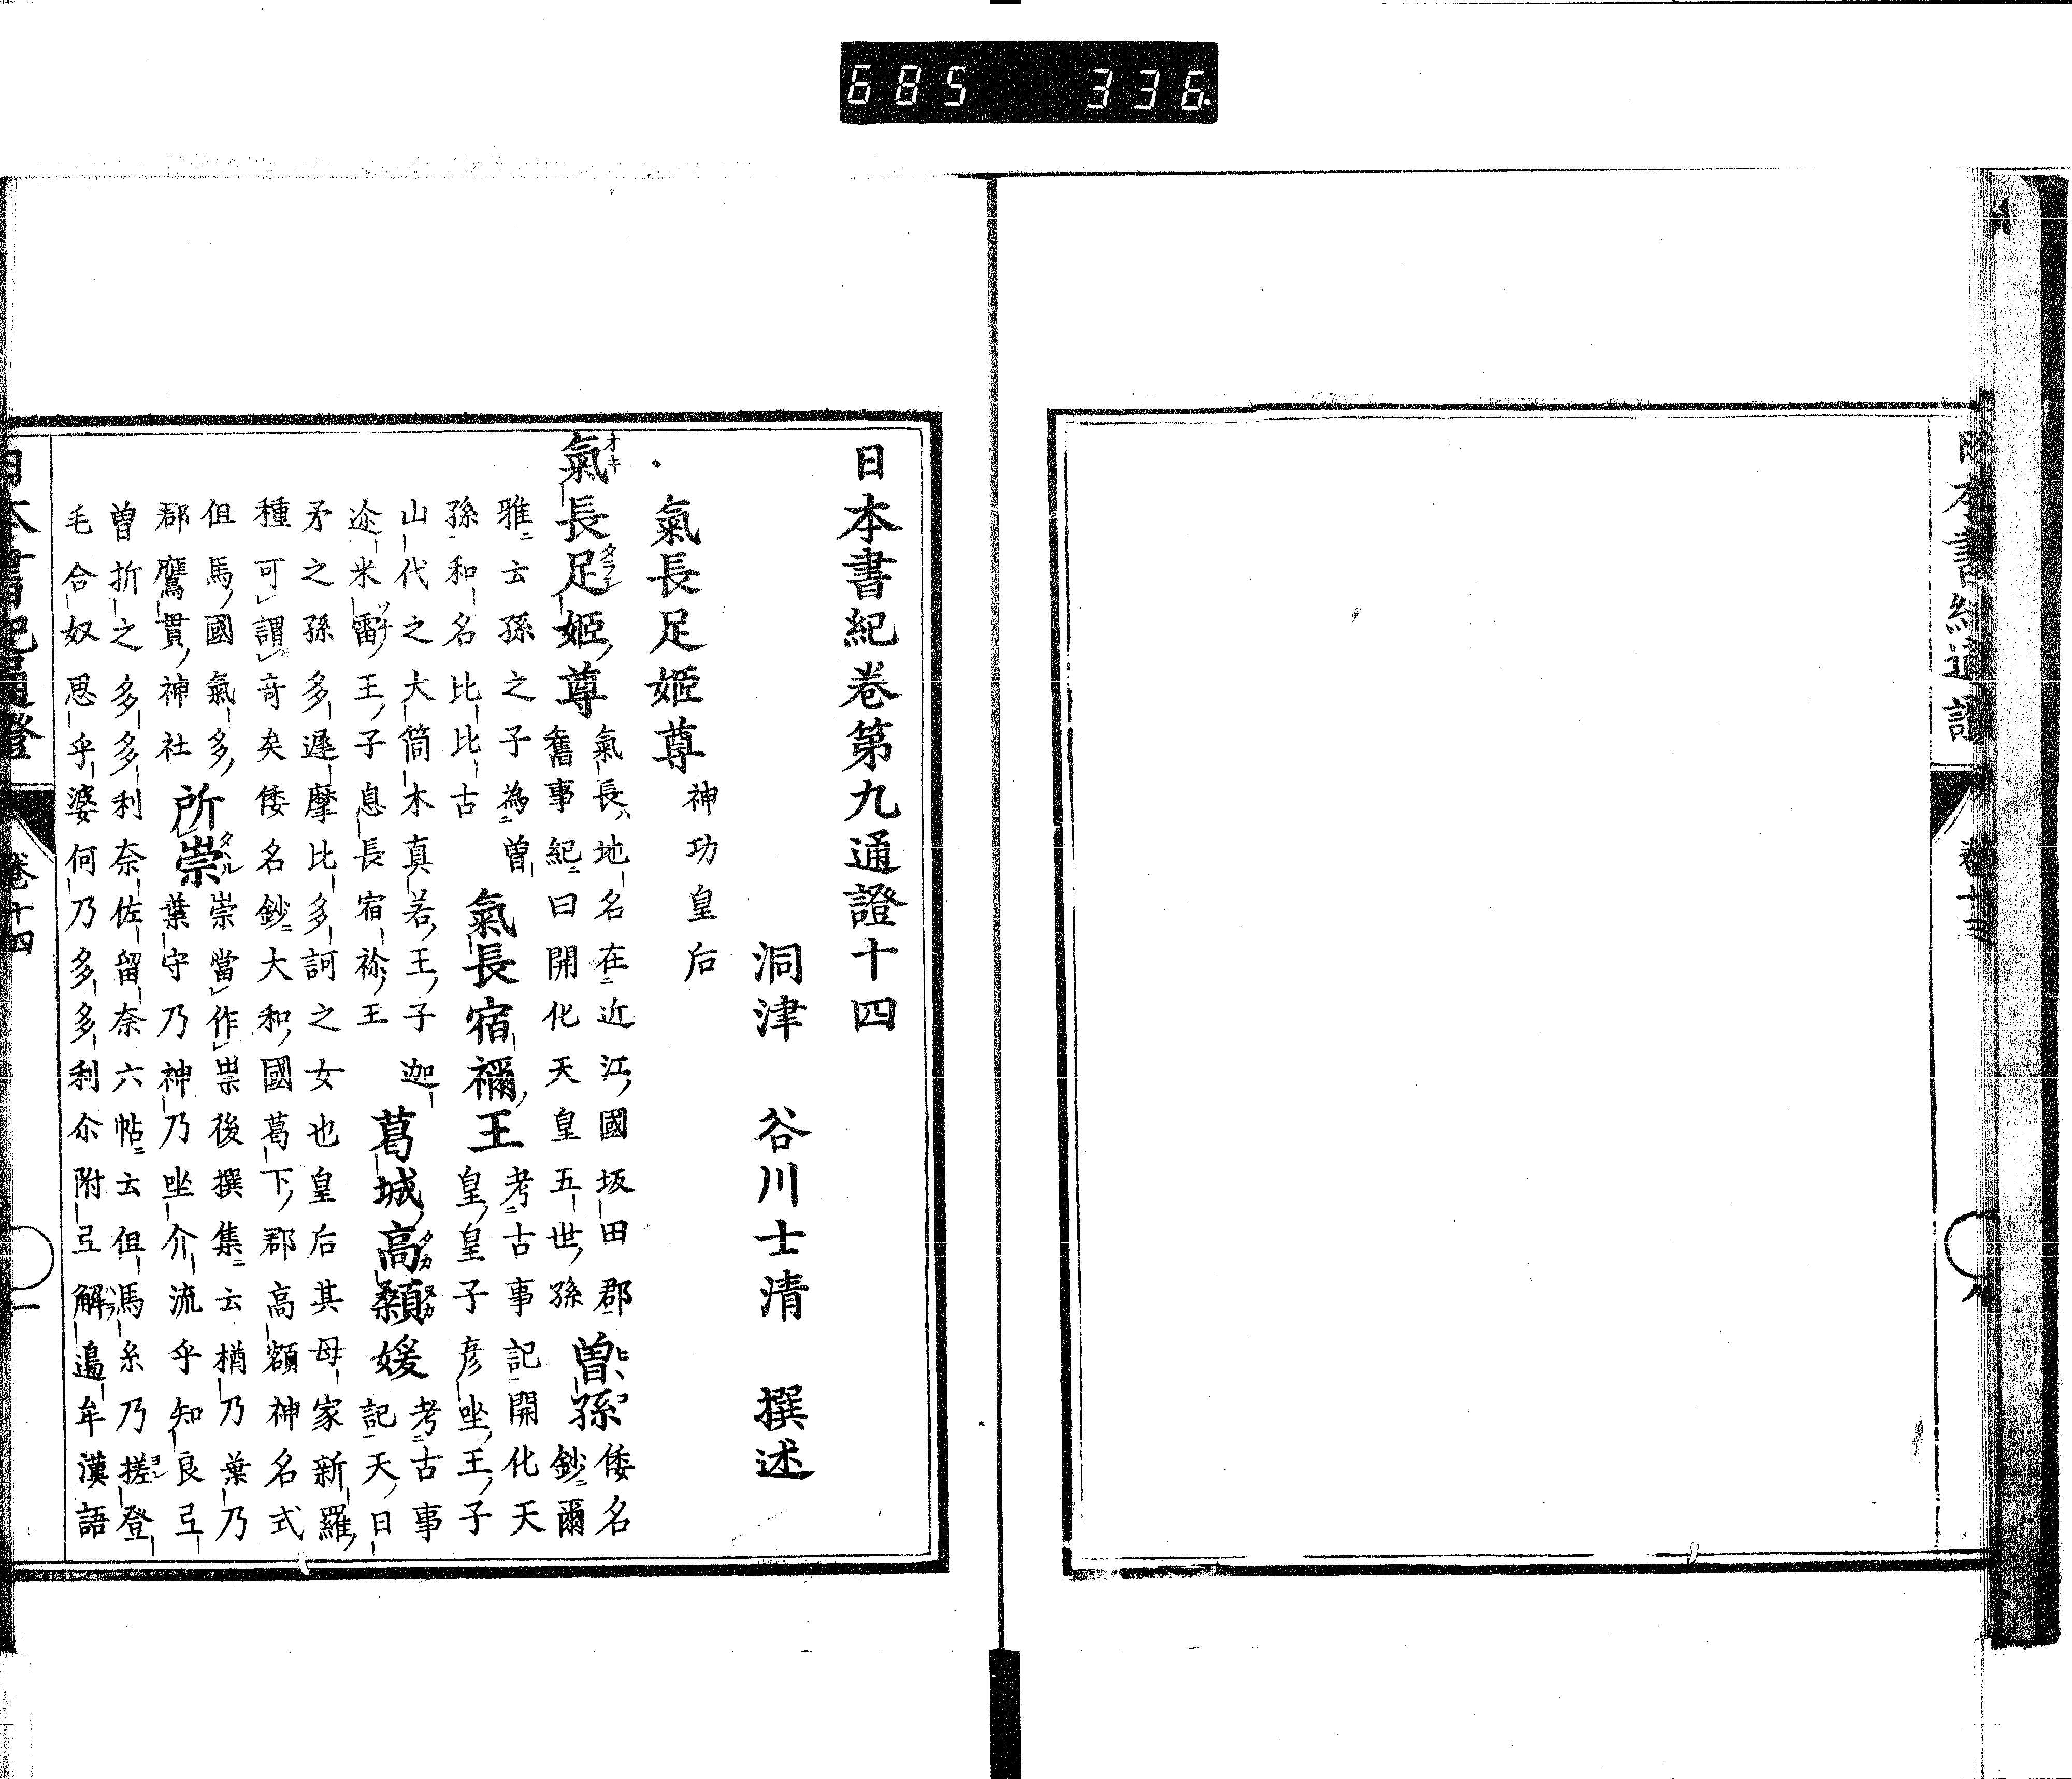 685 336
日本書紀卷第九通證十四
洞津 谷川士清 撰述
氣長足姬尊 神功皇后
氣長足姬尊 氣長地名在近江國坂田郡舊事紀曰開化天皇五世孫 曽孫 倭名鈔爾
雅云孫之子為曽孫和名比比古 氣長宿禰王 考古事記開化天皇皇子彦坐王子
山代之大筒木真若王子迦迩米雷王子息長宿祢王 葛城高顙媛 考古事記天日
矛之孫多遲摩比多訶之女也皇后其母家新羅種可謂竒矣倭名鈔大和國葛下郡高額神名式
但馬國氣多郡鷹貫神社 所崇 崇當作祟後撰集云楢乃葉乃葉守乃神乃坐介流乎知良弖
曽折之多多利奈佐留奈六帖云但馬糸乃搓登毛合奴思乎婆何乃多多利尒附弖解邊牟漢語
日本書紀通證 卷十四 一